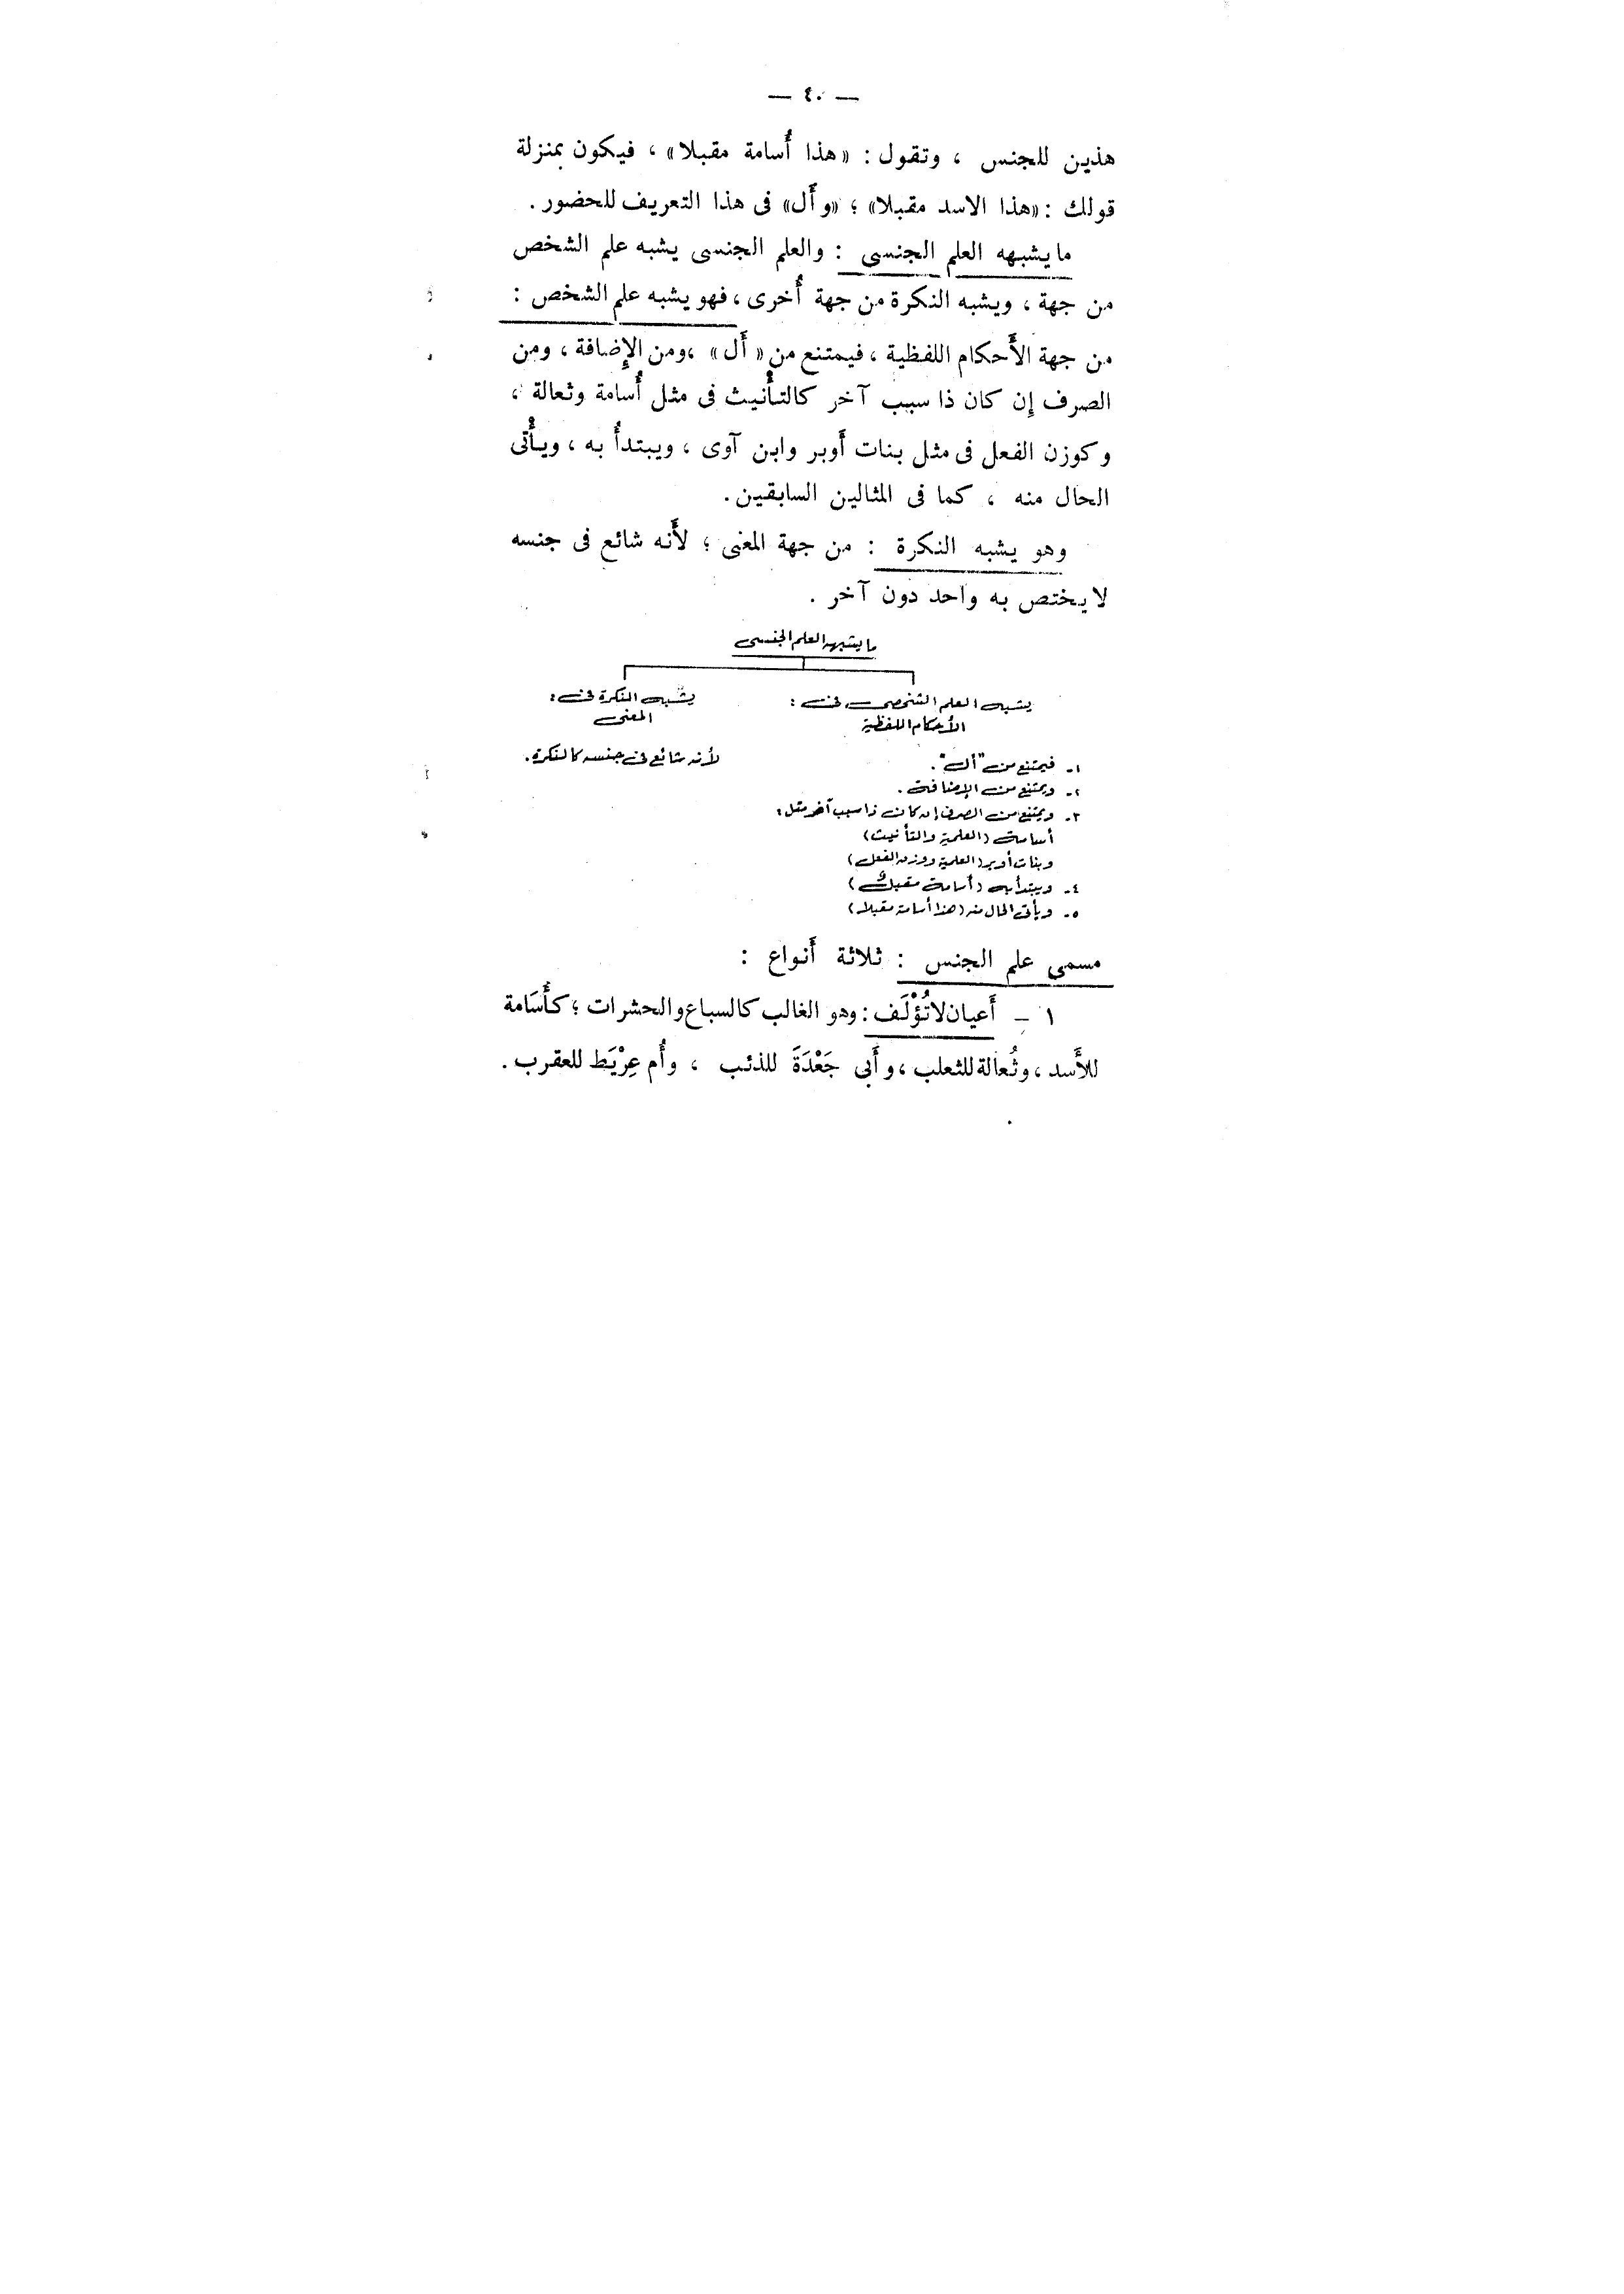 — ٤٠ —
هذين للجنس ، وتقول : «هذا أُسامة مقبلا» ، فيكون بمنزلة
قولك : «هذا الاسد مقبلا» ؛ «وأَل» فى هذا التعريف للحضور .
ما يشبهه العلم الجنسى : والعلم الجنسى يشبه علم الشخص
من جهة ، ويشبه النكرة من جهة أُخرى ، فهو يشبه علم الشخص :
من جهة الأَحكام اللفظية ، فيمتنع من «أَل» ، ومن الإِضافة ، ومن
الصرف إِن كان ذا سبب آخر كالتأْنيث فى مثل أُسامة وثعالة ،
وكوزن الفعل فى مثل بنات أَوبر وابن آوى ، ويبتدأُ به ، ويأْتى
الحال منه ، كما فى المثالين السابقين .
وهو يشبه النكرة : من جهة المعنى ؛ لأَنه شائع فى جنسه
لا يختص به واحد دون آخر .
ما يشبهه العلم الجنسى
يشبه العلم الشخصى فى :
الأحكام اللفظية
١- فيمتنع من "أل" .
٢- ويمتنع من الإضافة .
٣- ويمتنع من الصرف إن كان ذا سبب آخر مثل :
أسامة (العلمية والتأنيث)
وبنات أوبر (العلمية ووزن الفعل)
٤- ويبتدأ به (أسامة مقبلٌ)
٥- ويأتى الحال منه (هذا أسامة مقبلا)
يشبه النكرة فى :
المعنى
لأنه شائع فى جنسه كالنكرة .
مسمى علم الجنس : ثلاثة أَنواع :
١ – أَعيان لا تُؤْلَف : وهو الغالب كالسباع والحشرات ؛ كأُسَامة
للأَسد ، وثُعالة للثعلب ، وأَبى جَعْدَةَ للذئب ، وأُم عِرْيَط للعقرب .